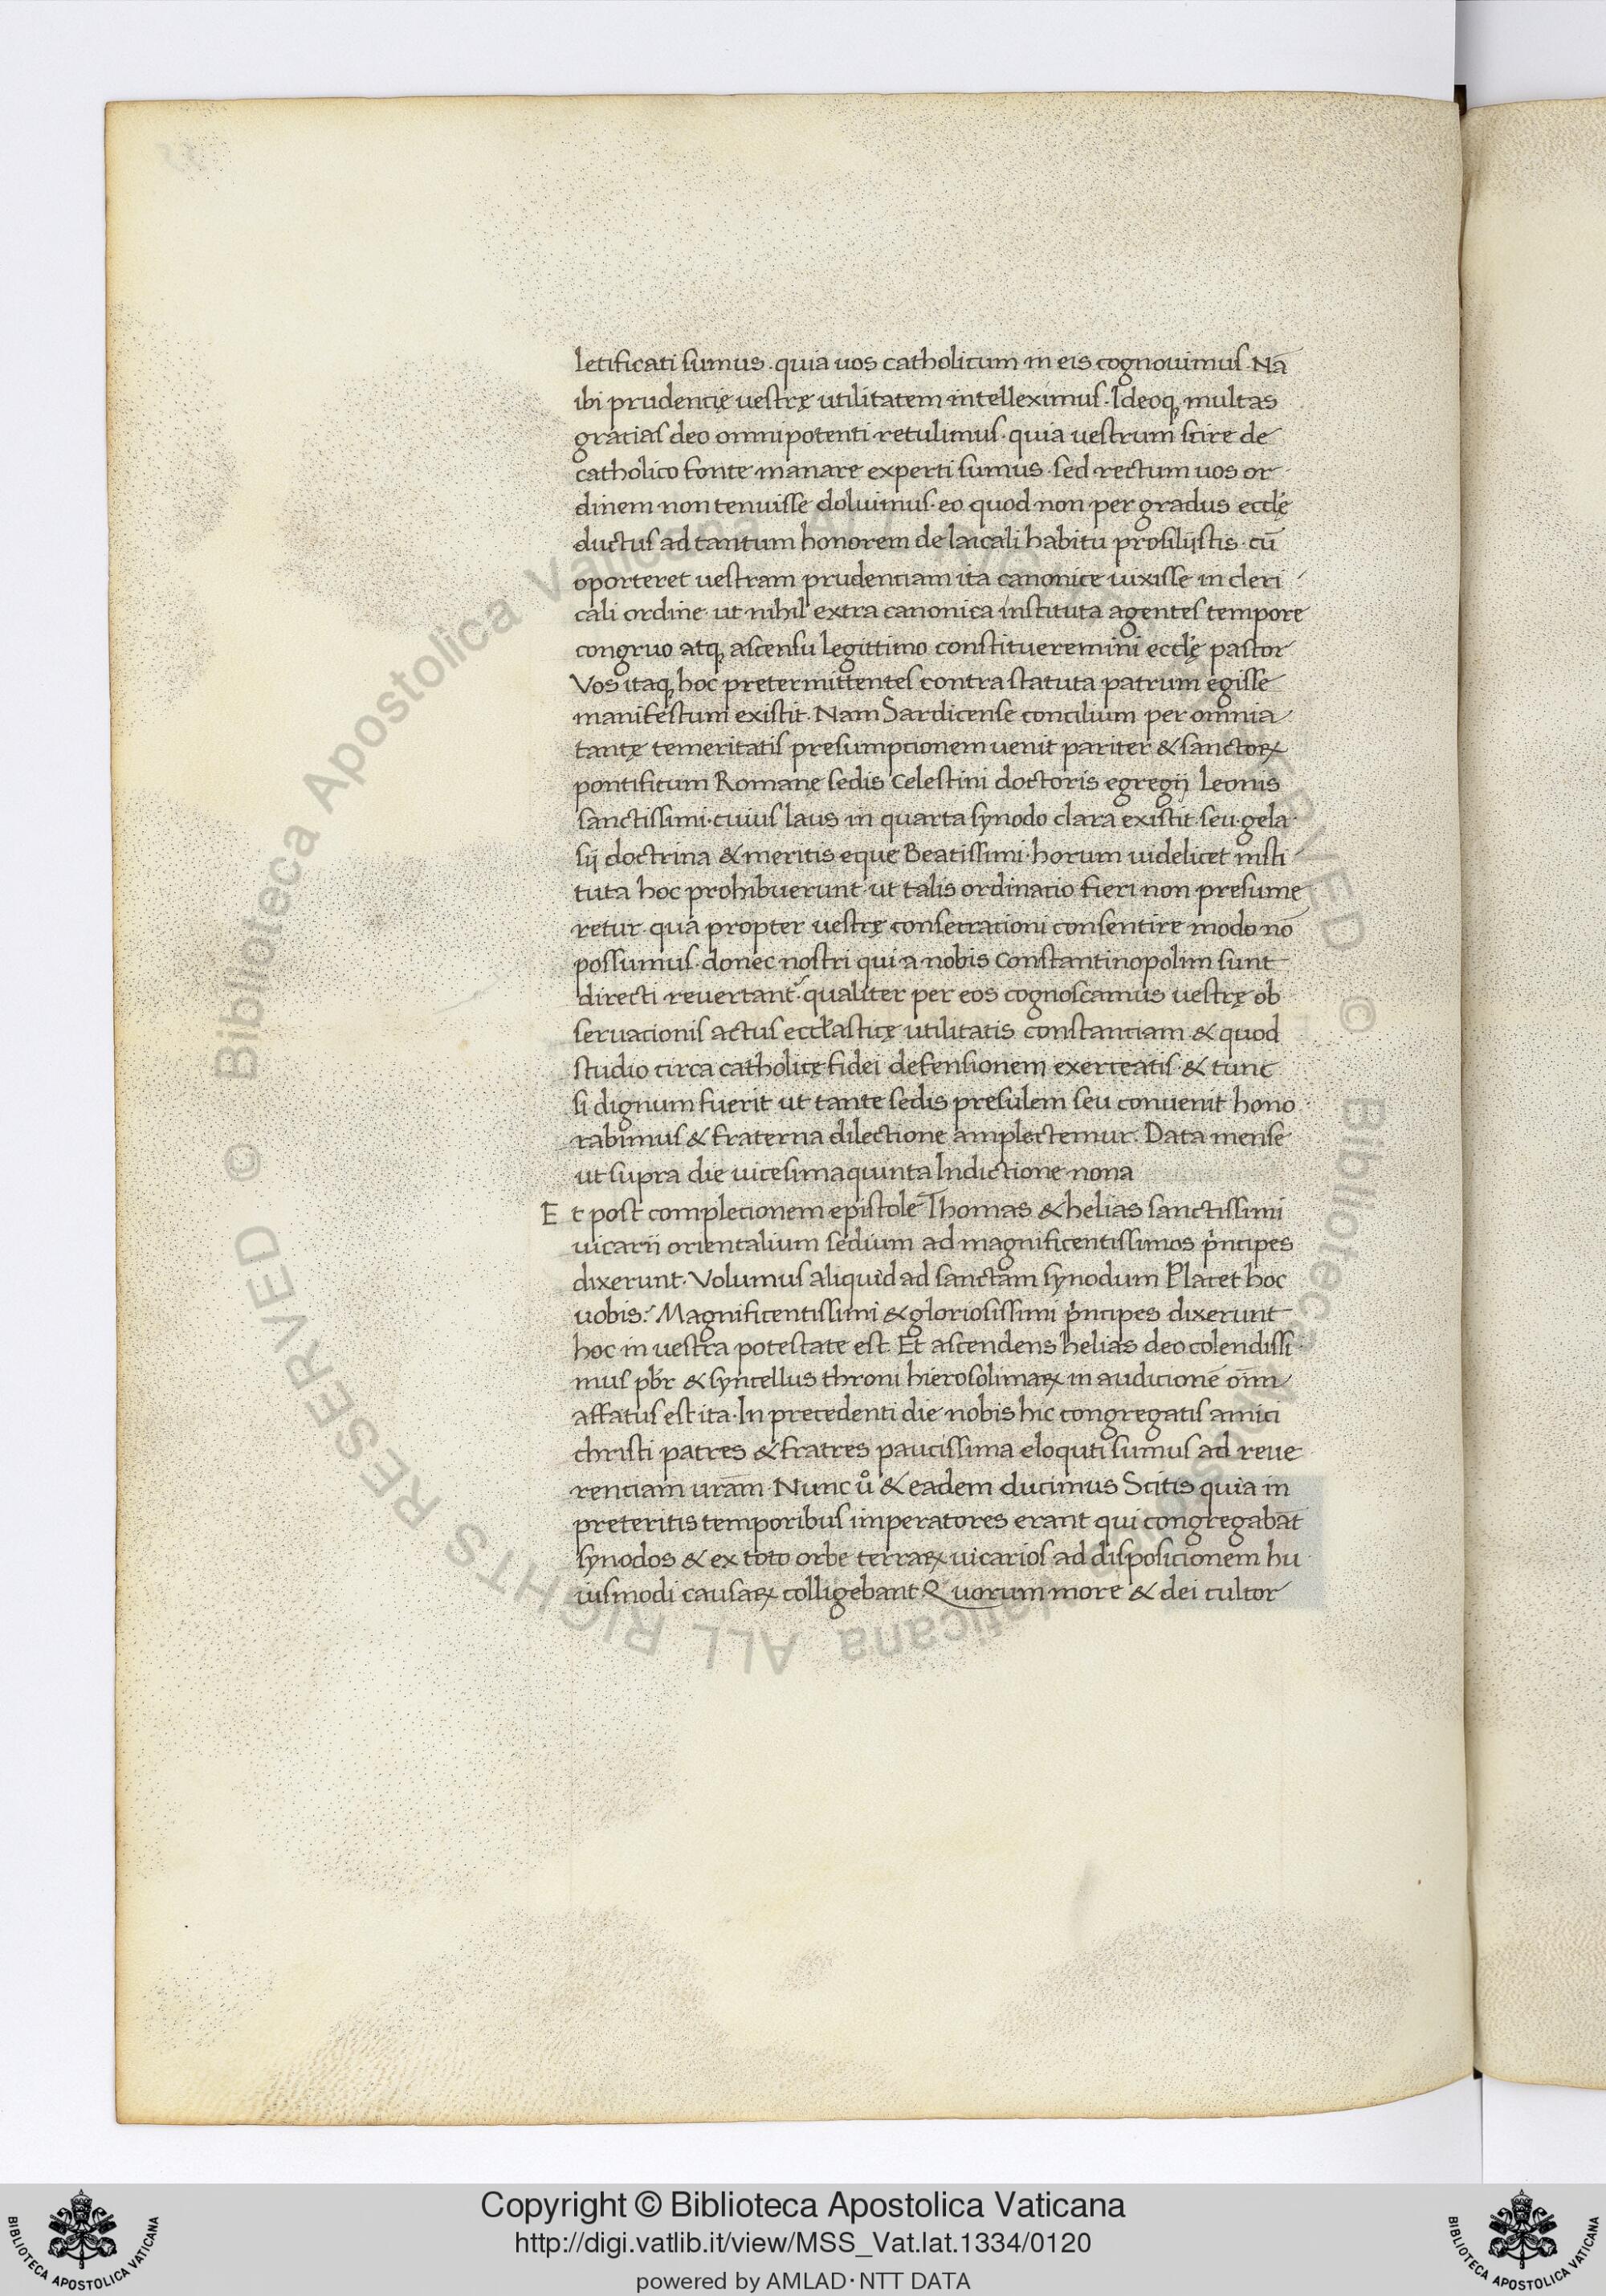 letificati sumus. quia uos catholicum in eis cognouimus. Nā
ibi prudencię uestrę utilitatem intelleximus. Ideoq; multas
gratias deo omnipotenti retulimus. quia uestrum scire de
catholico fonte manare experti sumus. sed rectum uos or
dinem non tenuisse doluimus. eo quod non per gradus eccl̄ę
ductus ad tantum honorem de laicali habitu prosiliistis. cū
oporteret uestram prudenciam ita canonice uixisse in cleri
cali ordine ut nihil extra canonica instituta agentes tempore
congruo atq; ascensu legittimo constitueremini eccl̄ę pastor
Vos itaq; hoc pretermittentes contra statuta patrum egisse
manifestum existit. Nam Sardicense concilium per omnia
tantę temeritatis presumpcionem uenit pariter & sanctoꝝ
pontificum Romanę sedis Celestini doctoris egregij Leonis
sanctissimi. cuius laus in quarta synodo clara existit. seu gela
sij doctrina & meritis eque Beatissimi. horum uidelicet insti
tuta hoc prohibuerunt ut talis ordinatio fieri non presume
retur. qua propter uestrę consecrationi consentire modo nō
possumus. donec nostri qui a nobis Constantinopolim sunt
directi reuertant᷑. qualiter per eos cognoscamus uestrę ob
seruacionis actus eccl̄asticę utilitatis constanciam & quod
studio circa catholicę fidei defensionem exerceatis. & tunc
si dignum fuerit ut tante sedis presulem seu conuenit hono
rabimus & fraterna dilectione amplectemur. Data mense
ut supra die uicesimaquinta Indictione nona
Et post completionem epistole Thomas & helias sanctissimi
uicarii orientalium sedium ad magnificentissimos pͥncipes
dixerunt. Volumus aliquid ad sanctam synodum Placet hoc
uobis. Magnificentissimi & gloriosissimi pͥncipes dixerunt
hoc in uestra potestate est. Et ascendens helias deo colendissi
mus pb̄r & syncellus throni hierosolimaꝝ in audicionē om̄i
affatus est ita. In precedenti die nobis hic congregatis amici
christi patres & fratres paucissima eloquti sumus ad reue
renciam ur̄am. Nunc uͦ & eadem ducimus Scitis quia in
preteritis temporibus imperatores erant qui congregabāt
synodos & ex toto orbe terraꝝ uicarios ad disposicionem hu
iusmodi causaꝝ colligebant. Quorum more & dei cultor
© Biblioteca Apostolica Vaticana ALL RIGHTS RESERVED © Biblioteca Apostolica Vaticana ALL RIGHTS RESERVED
BIBLIOTECA APOSTOLICA VATICANA
Copyright © Biblioteca Apostolica Vaticana
http://digi.vatlib.it/view/MSS_Vat.lat.1334/0120
powered by AMLAD·NTT DATA
BIBLIOTECA APOSTOLICA VATICANA